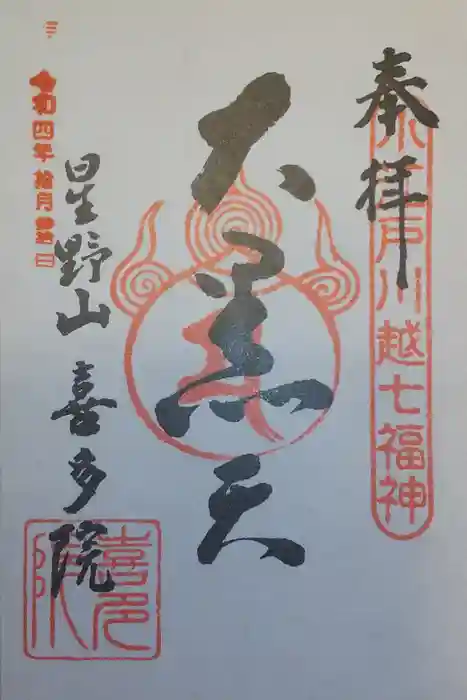 奉拝
小江戸川越七福神
大黒天
星野山 喜多院
令和四年拾月
喜多院